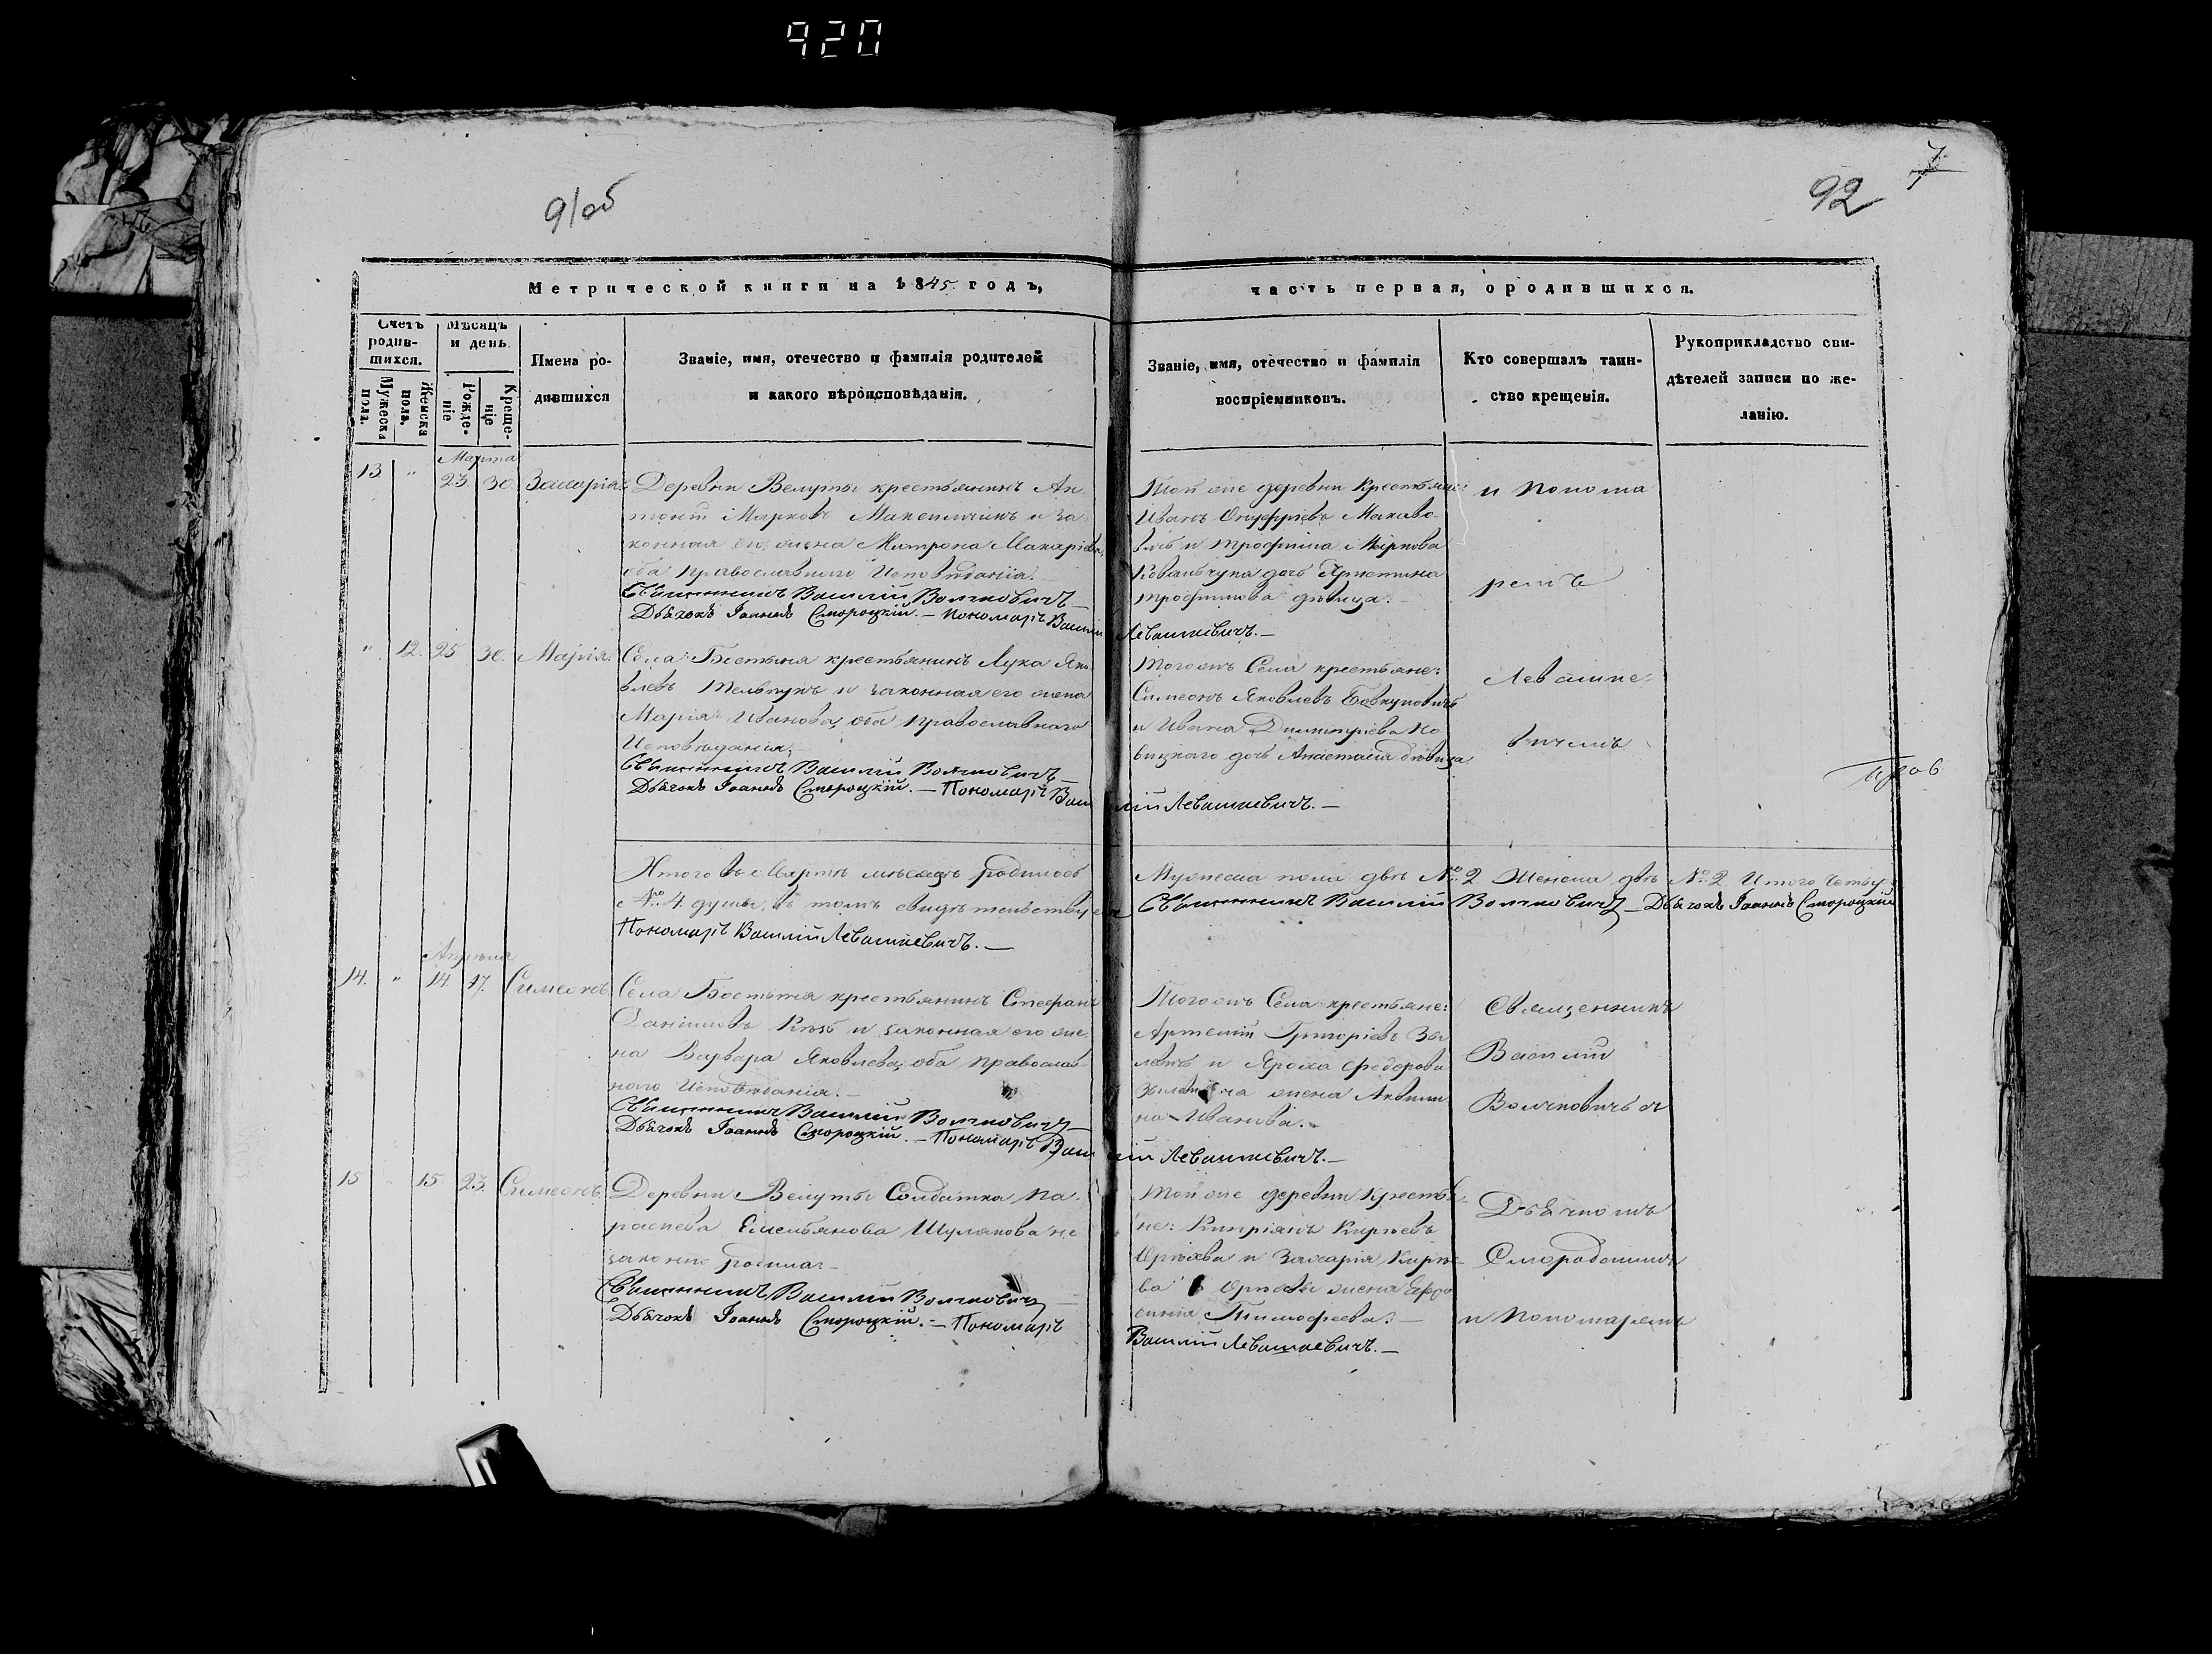 920
91об
92
7
Метрической книги на 1845 годъ,
часть первая, о родившихся.
Счетъ родив-шихся.
Мужеска пола.
Женска пола.
Мѣсяцъ и день.
Рожде-ніе
Креще-ніе
Имена ро-
дившихся
Званіе, имя, отечество и фамилія родителей
и какого вѣроисповѣданія.
Званіе, имя, отечество и фамилія
воспріемниковъ.
Кто совершалъ таин-
ство крещенія.
Рукоприкладство сви-
дѣтелей записи по же-
ланію.
Марта
13 " 23. 30 Захарія.
Деревни Велуты крестьянинъ Ан-
тоній Марковъ и за
конная его жена Матрона Макаріева,
оба Православнаго Исповѣданія.
Священникъ Василій Волчковичъ
Дьячокъ Іоаннъ Смороцкій. — Пономарь Василій Левашкевичъ. —
Той же деревни Крестьяне:
Иванъ Онуфріевъ
и Трофима Маркова
Ковальчука дочь Христина
Трофимова дѣвица. —
и Понома
ремъ
" 12. 25 30. Марія.
Села Бостыня крестьянинъ Лука Яко
влевъ и законная его жена
Марія Иванова, оба Православнаго
Исповѣданія,
Священникъ Василій Волчковичъ —
Дьячокъ Іоаннъ Смороцкій. — Пономарь Василій Левашкевичъ. —
Тогожъ Села крестьяне:
Симеонъ Яковлевъ
и Ивана Димитріева Но
вицкаго дочь Анастасія дѣвица
Левашке-
вичемъ
Итого въ Мартѣ мѣсяцѣ родилось Мужеска пола двѣ № 2 Женска двѣ № 2. Итого четыре
№ 4 души, въ томъ свидѣтельствуемъ Священникъ Василій Волчковичъ — Дьячокъ Іоаннъ Смороцкій
Пономарь Василій Левашкевичъ. —
Апрѣля
14. " 14. 17. Симеонъ
Села Бостыня крестьянинъ Стефанъ
Даніиловъ и законная его же
на Варвара Яковлева, оба Православ-
наго Исповѣданія. —
Священникъ Василій Волчковичъ —
Дьячокъ Іоаннъ Смороцкій. — Пономарь Василій Левашкевичъ. —
Тогожъ Села крестьяне:
Артемій Григоріевъ
и Федорова
жена Акили
на Иванова. —
Священникъ
Василій
Волчковичъ съ
15 15 23. Симеонъ.
Деревни Велуты Солдатка Па-
раскева Емельянова Шулякова не
законно
Священникъ Василій Волчковичъ —
Дьячокъ Іоаннъ Смороцкій. — Пономарь
Той же деревни Крестья-
не: Кипріянъ Кирѣевъ
и Захарія Кирѣе-
ва жена Евфро
синія Тимофеева. —
Василій Левашкевичъ. —
Дьячкомъ
и Пономаремъ